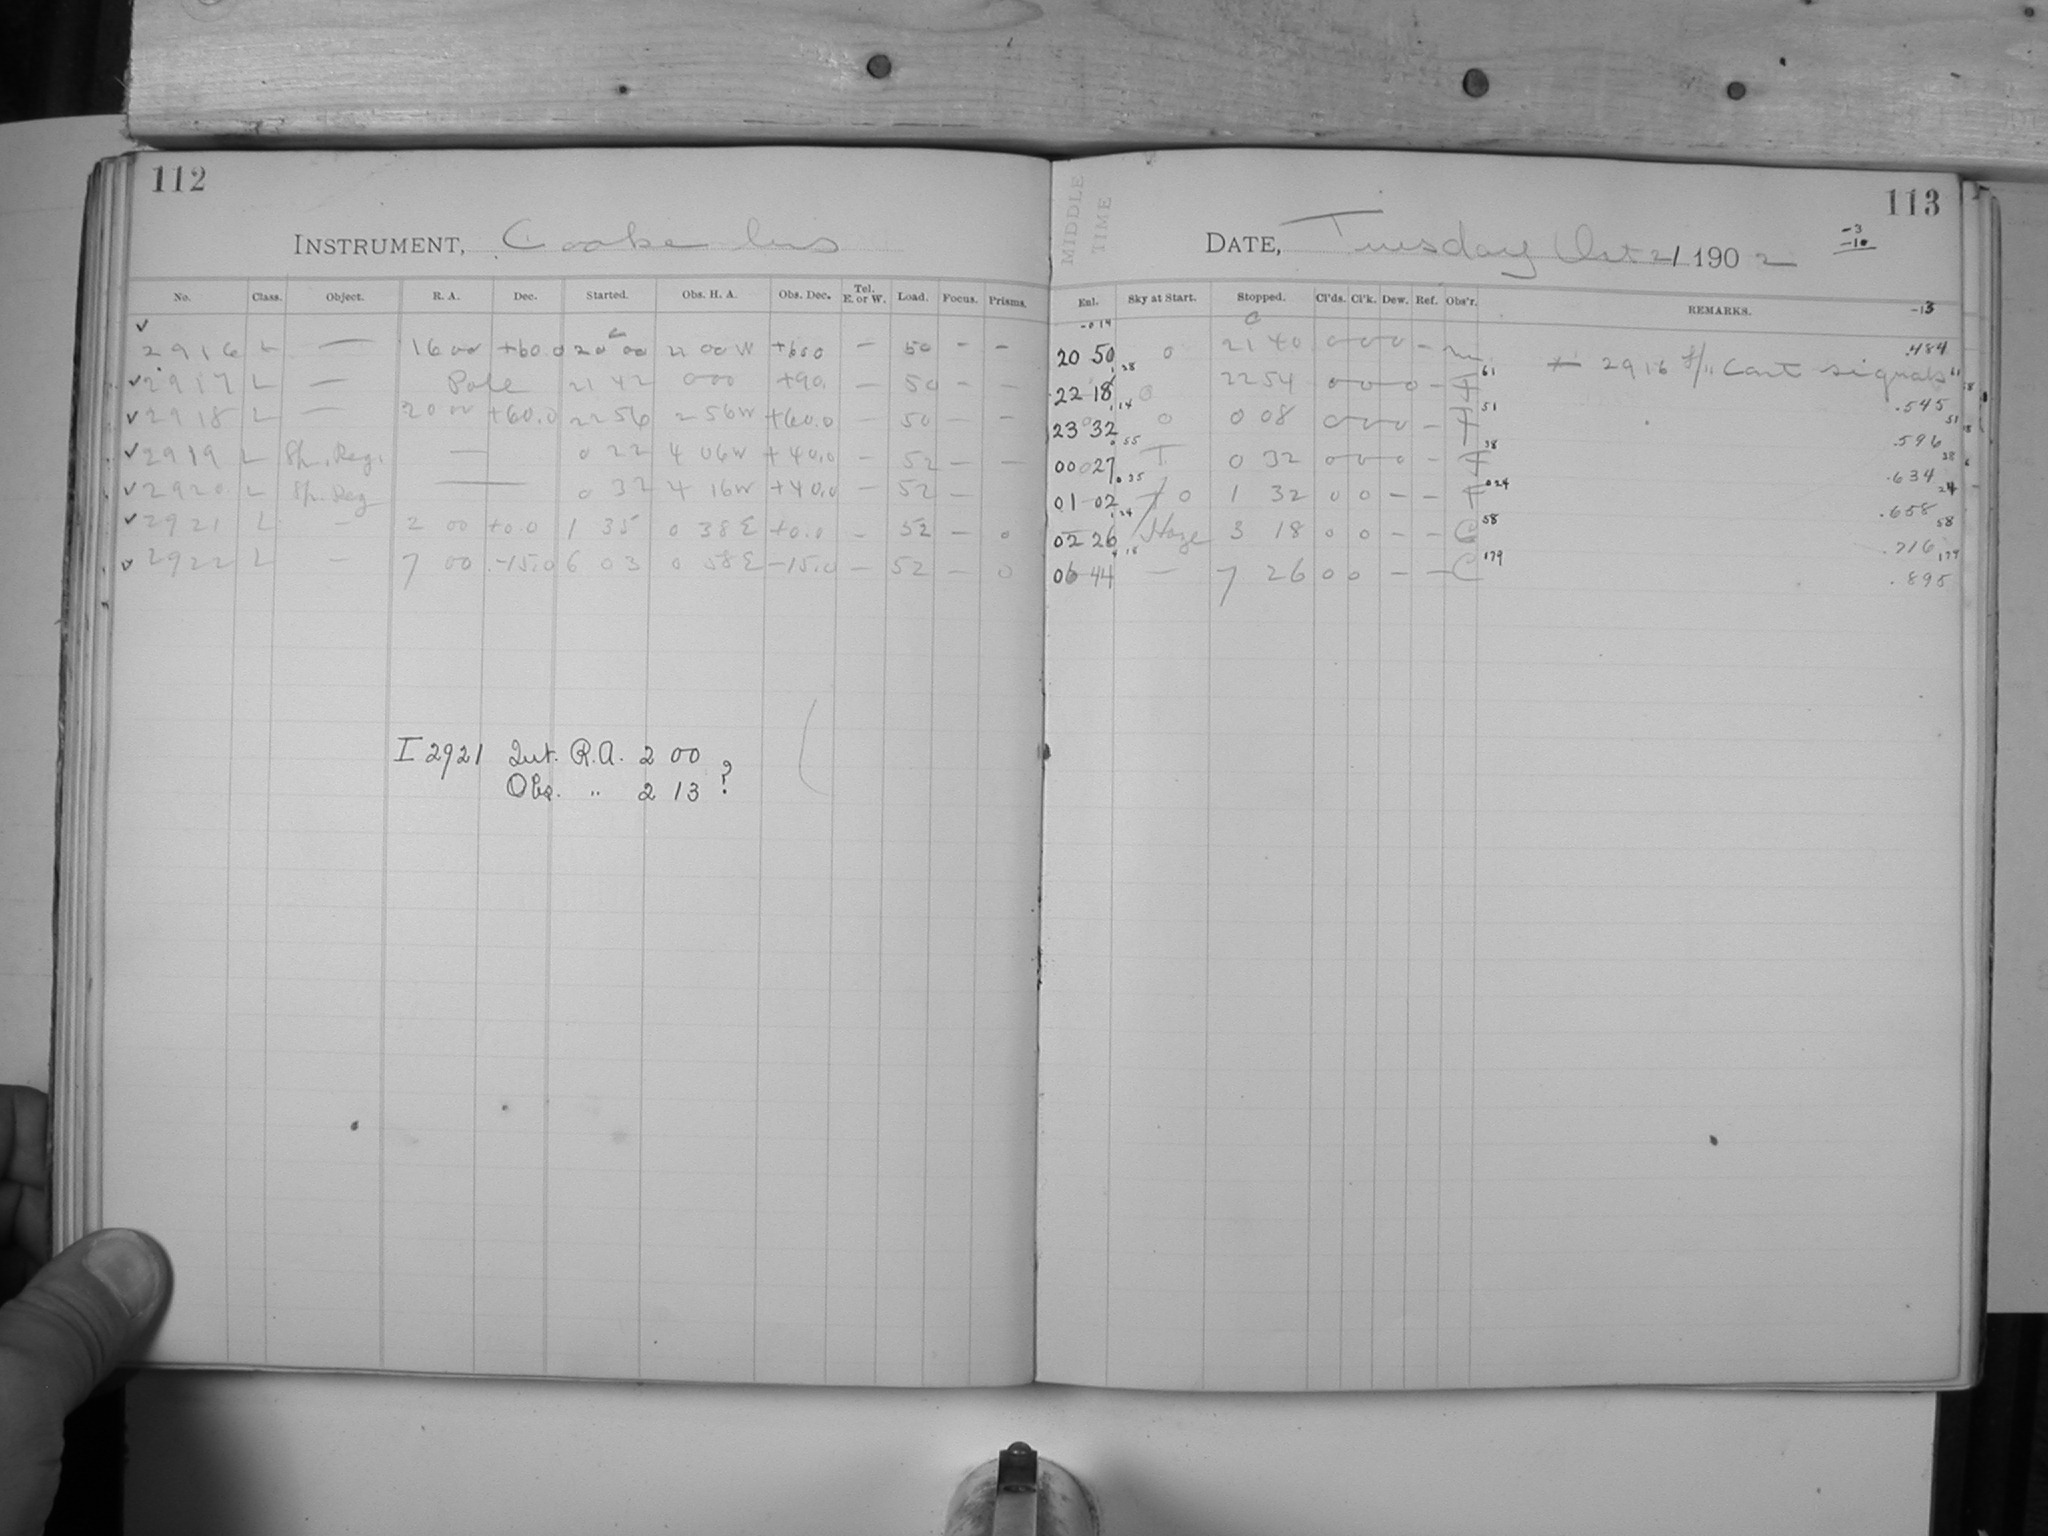 112
INSTRUMENT, Cooke lens
No. Class. Object. R. A. Dec. Started. Obs. H. A. Obs. Dec. Tel. E. or W. Load. Focus. Prisms.
✓ 2916 L — 16 00 +60.0 20 00 4 00 W +60.0 — 50 — —
✓ 2917 L — Pole 21 42 0 00 +90. — 50 — —
✓ 2918 L — 20 00 +60.0 22 56 2 56 W +60.0 — 50 — —
✓ 2919 L Sp. Reg. — 0 22 4 06 W +40.0 — 52 — —
✓ 2920 L Sp. Reg — 0 32 4 16 W +40.0 — 52 —
✓ 2921 L — 2 00 +0.0 1 35 0 38 E +0.0 — 52 — 0
✓ 2922 L — 7 00 -15.0 6 03 0 58 E -15.0 — 52 — 0
I 2921 Int. R.A. 2 00
Obs. " 2 13 ?
113
MIDDLE
TIME
DATE, Tuesday Oct 21 1902
-3
-10
-13
Enl. Sky at Start. Stopped. Cl'ds. Cl'k. Dew. Ref. Obs'r. REMARKS.
-014
20 50 0 21 40 0 0 0 — 2916 f/11 Cant signals .484
1 28 61 61
22 18 0 22 54 0 0 0 — F .545
1 14 51 51
23 32 0 0 08 0 0 0 — F .596
0 55 38 38
00 27 T 0 32 0 0 0 — F .634
0 35 024 24
01 02 0 1 32 0 0 — — F .658
1 24 58 58
02 26 Haze 3 18 0 0 — — C .716
4 18 179 179
06 44 — 7 26 0 0 — — C .895